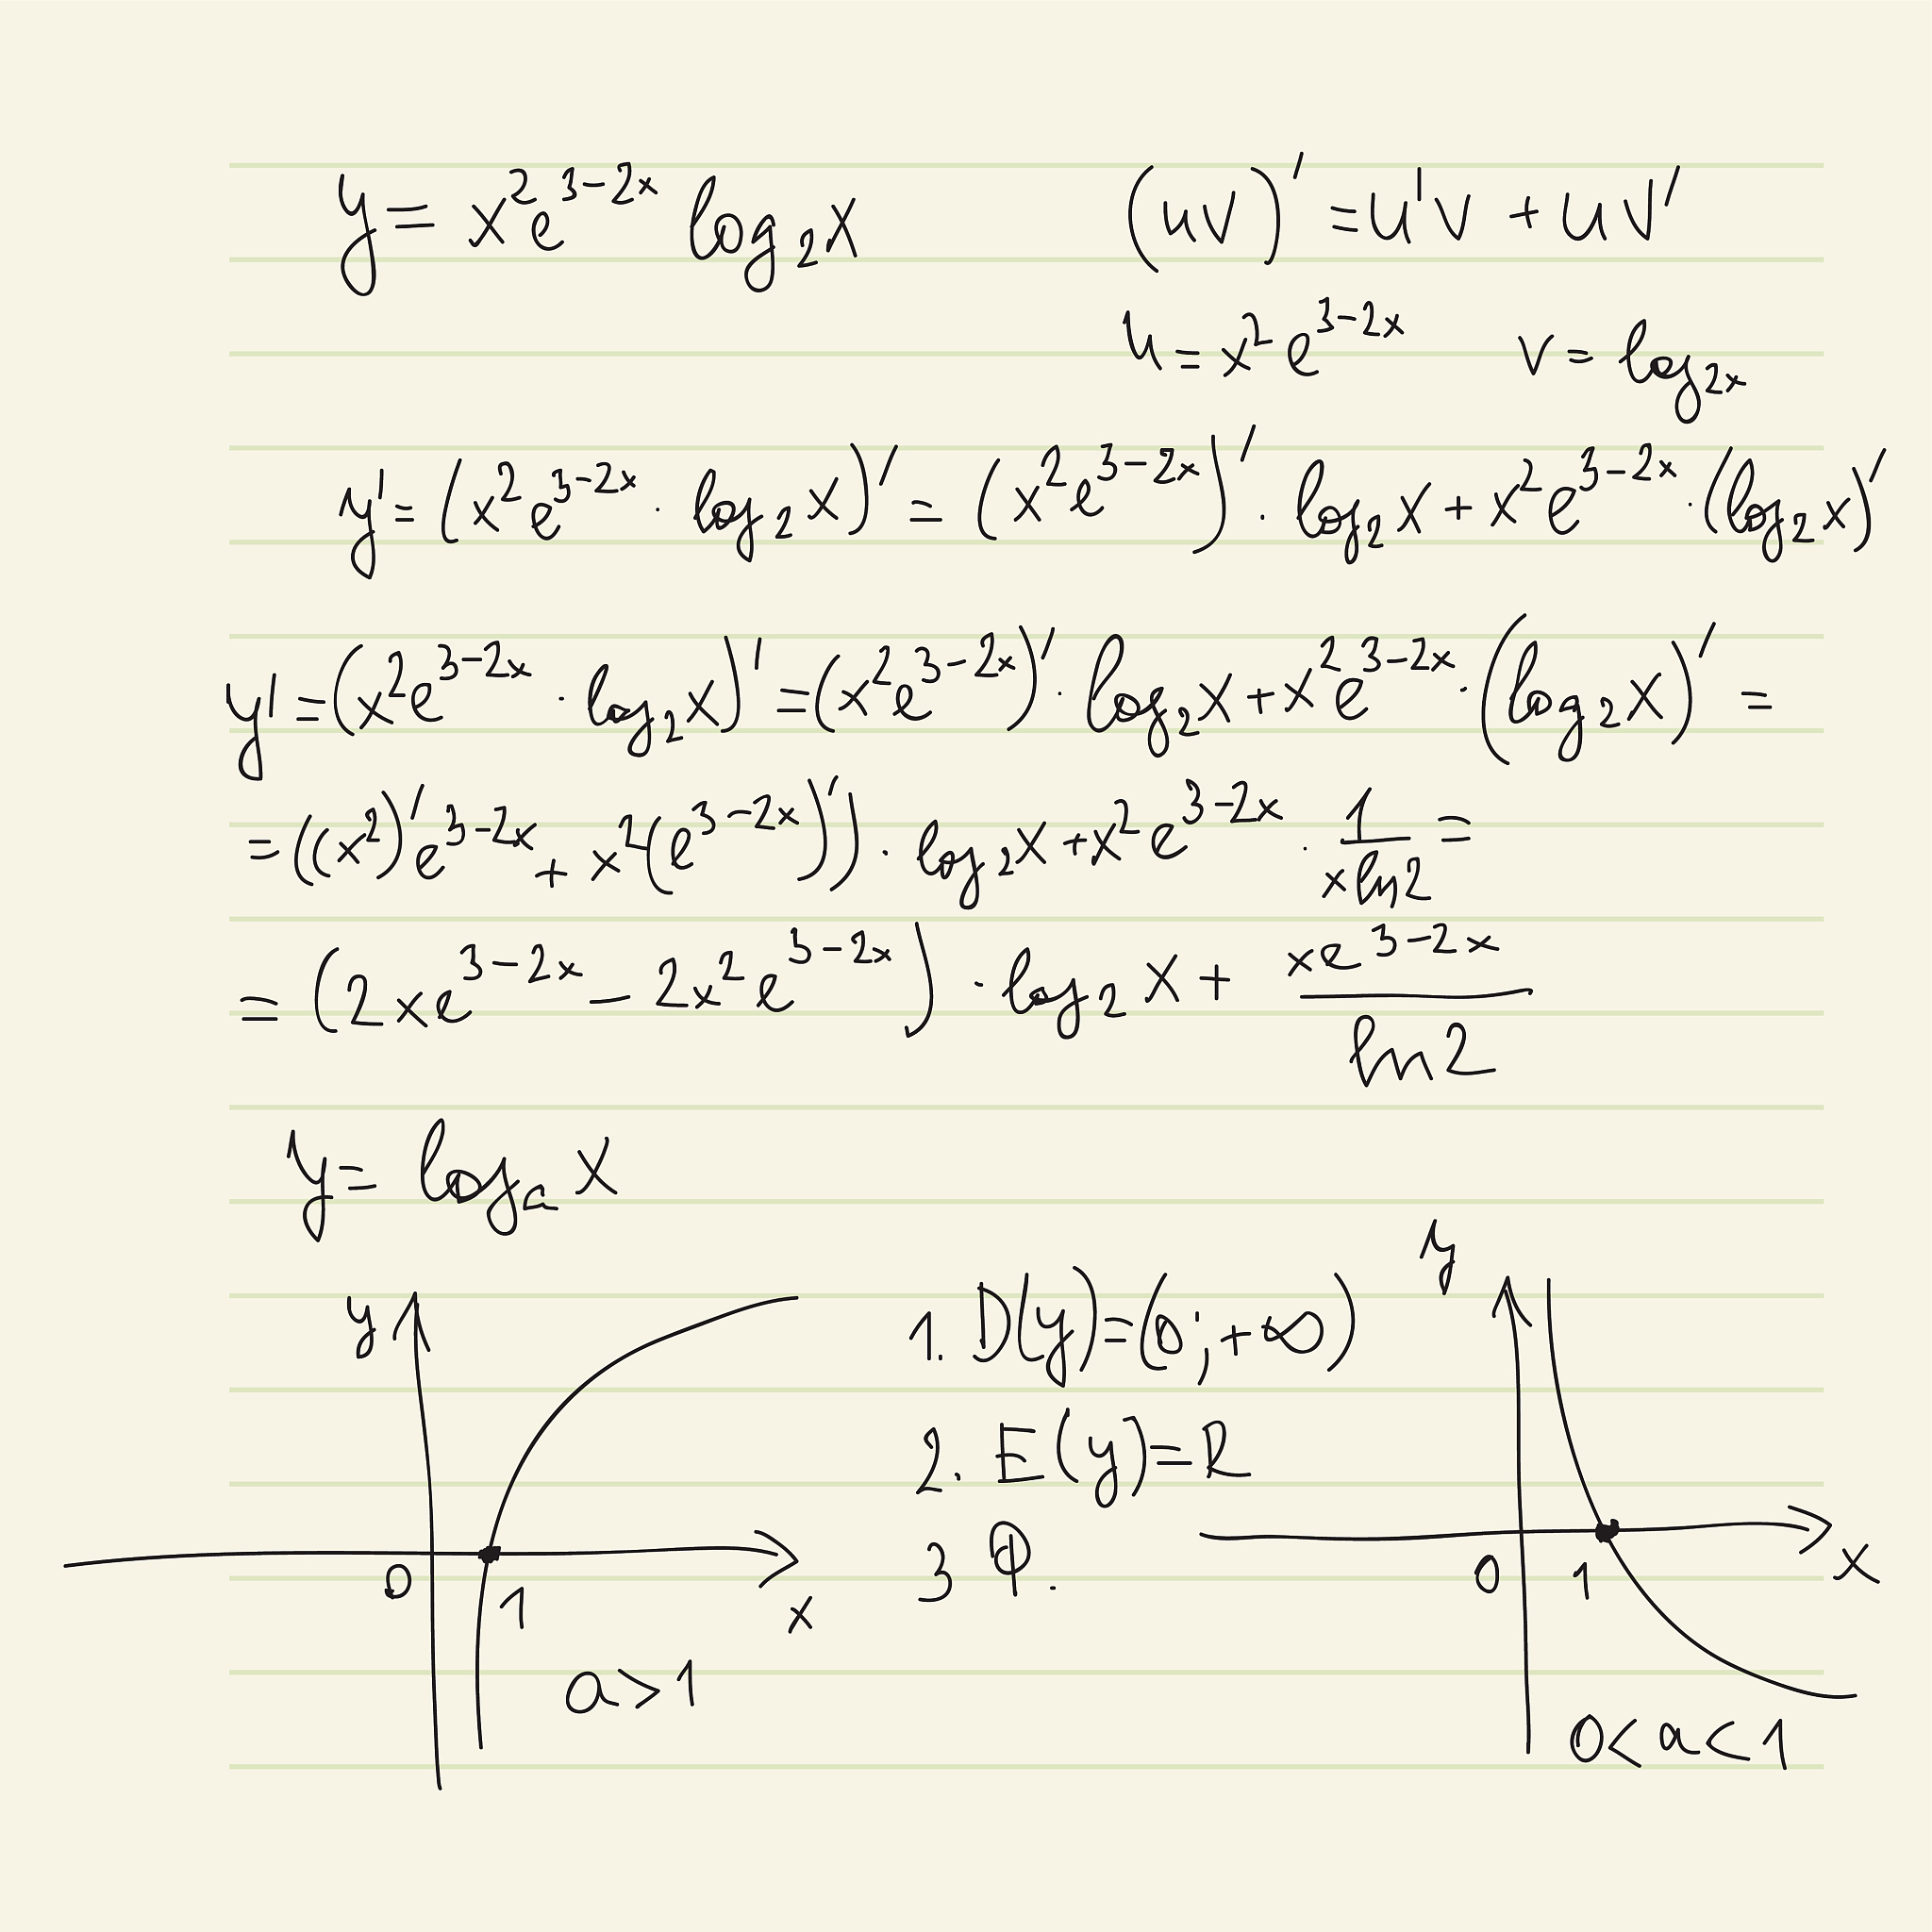 y = x²e³⁻²ˣ log₂x (uv)' = u'v + uv'
u = x²e³⁻²ˣ v = log₂ₓ
y' = (x²e³⁻²ˣ · log₂x)' = (x²e³⁻²ˣ)' · log₂x + x²e³⁻²ˣ · (log₂x)'
y' = (x²e³⁻²ˣ · log₂x)' = (x²e³⁻²ˣ)' · log₂x + x²e³⁻²ˣ · (log₂x)' =
= ((x²)'e³⁻²ˣ + x²(e³⁻²ˣ)') · log₂x + x²e³⁻²ˣ · 1/(x ln2) =
= (2xe³⁻²ˣ - 2x²e³⁻²ˣ) · log₂x + xe³⁻²ˣ/ln2
y = logₐx
y
0
1
x
a > 1
1. D(y) = (0; +∞)
2. E(y) = R
3 Ф.
y
0
1
x
0 < a < 1